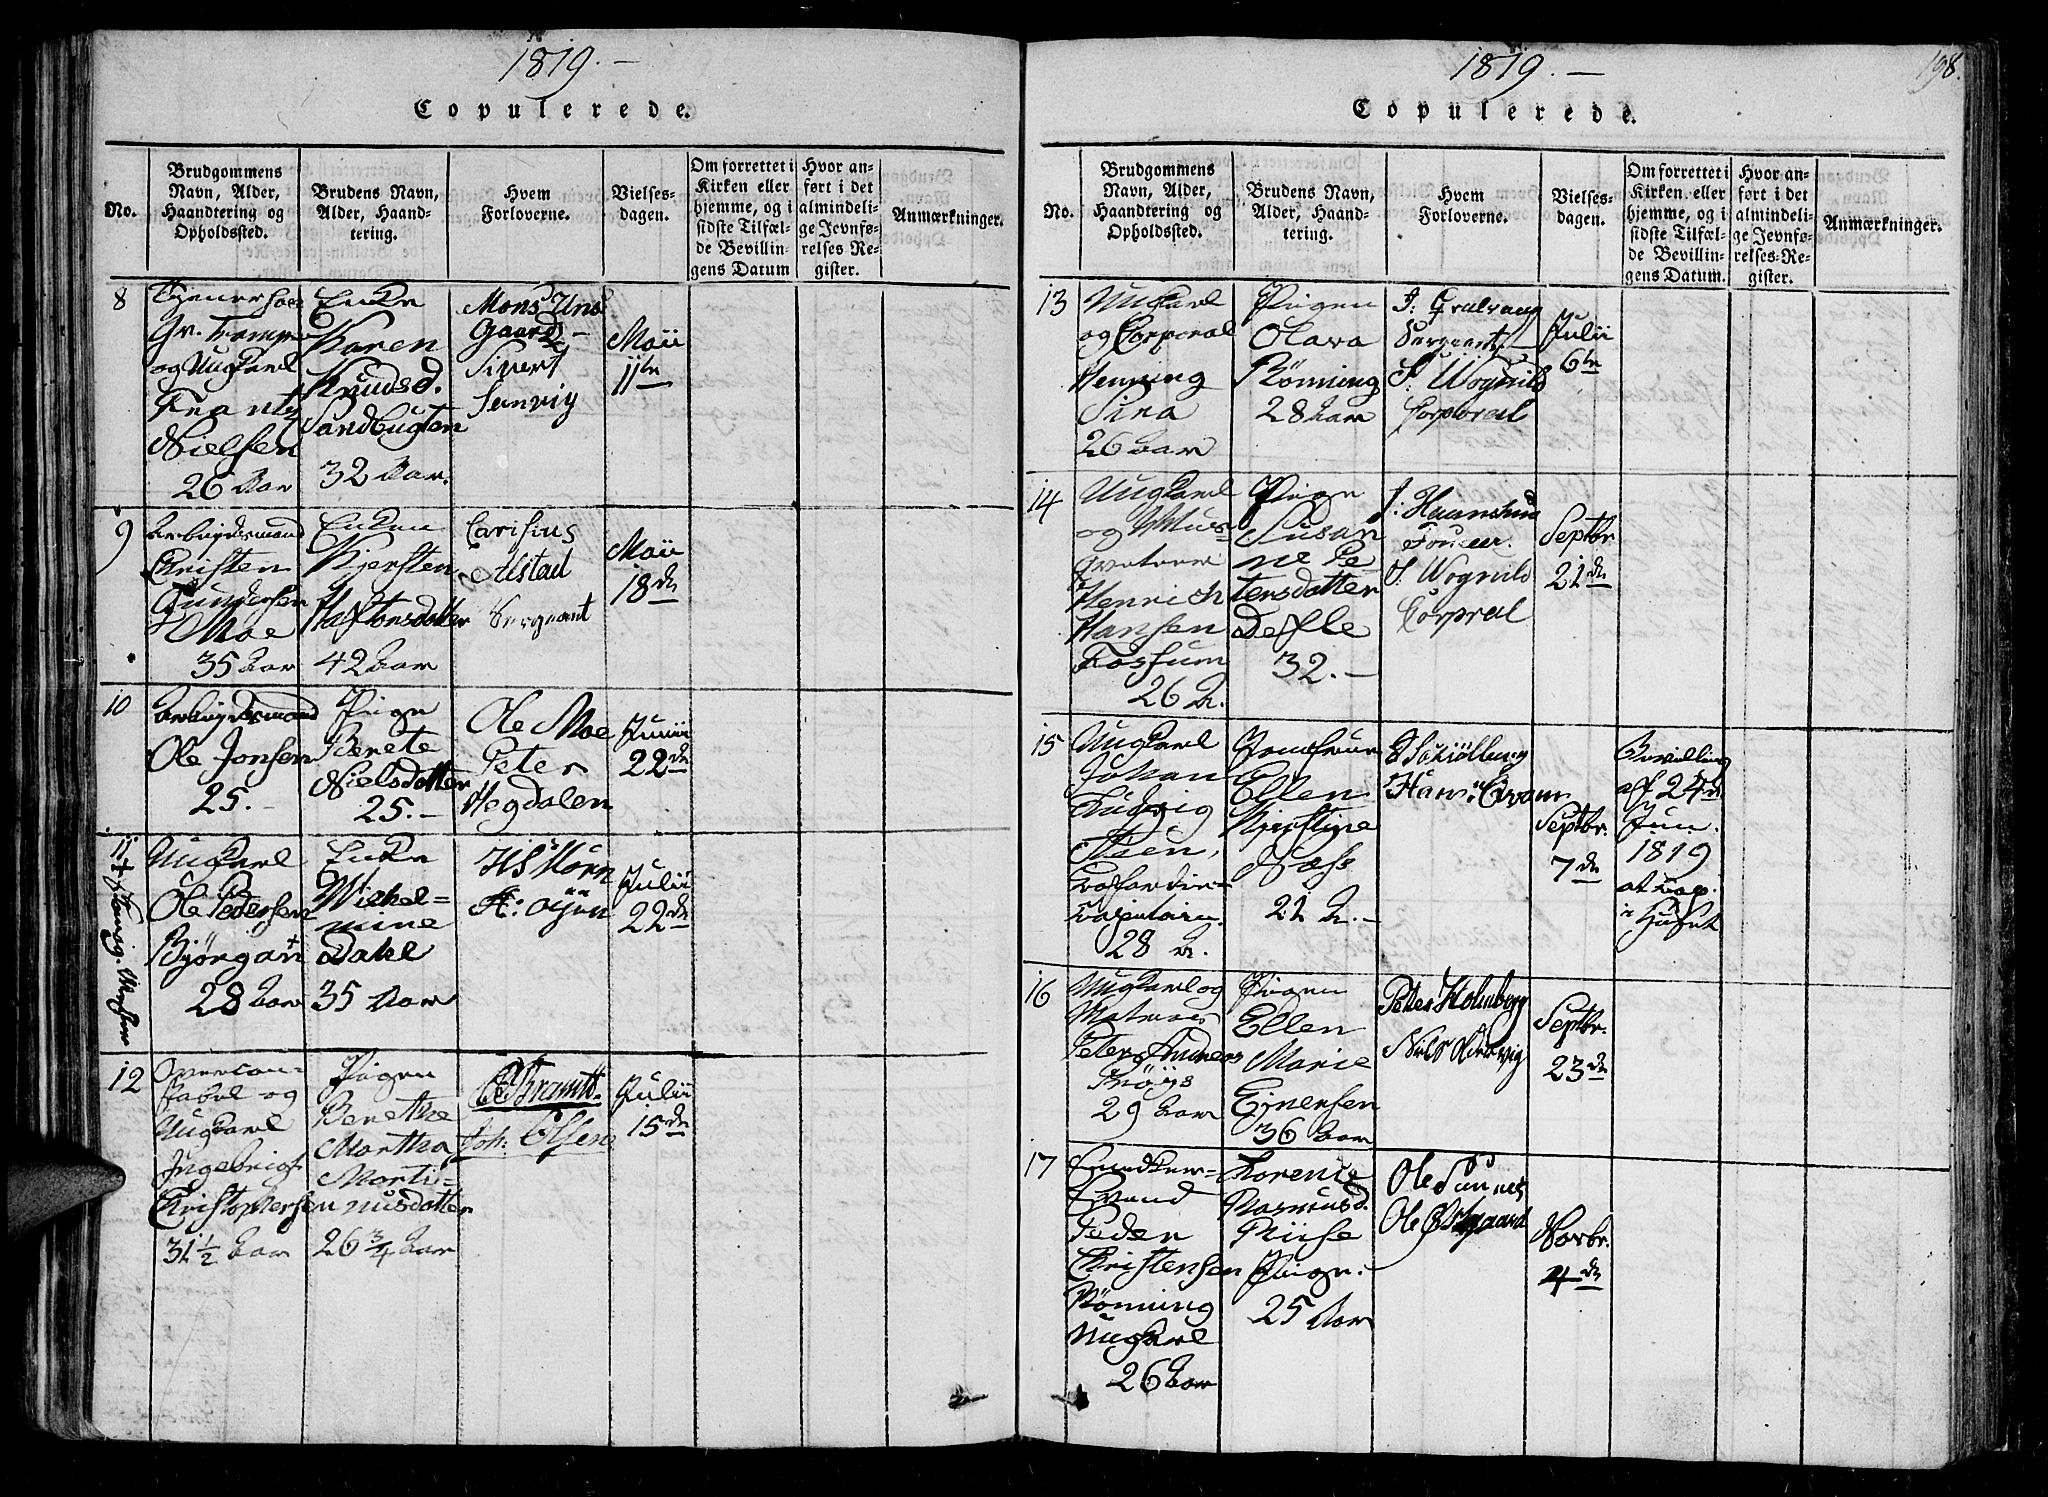 1819.
Copulerede.
No.
Brudgommens
Navn, Alder,
Haandtering og
Opholdssted.
Brudens Navn,
Alder, Haand-
tering.
Hvem
Forloverne.
Vielses-
dagen.
Om forrettet i
Kirken eller
hjemme, og i
sidste Tilfæl-
de Bevillin-
gens Datum
Hvor an-
ført i det
almindeli-
ge Jevnfø-
relses Re-
gister.
Anmærkninger.
8
og Ungkarl
Frantz
Nielsen
26 Aar
Enke
Karen
Knudsd.
Sandbugten
32 Aar.
Mons Uns
gaard
Sivert
Maii
11te
9
Arbeydsmand
Christen
Gundersen
Moe
35 Aar
Enken
Kjersten
Haftonsdatter
42 Aar
Alstad
Sergeant
Maii
18de
10
Arbeydsmand
Ole Jonsen
25.
Pigen
Berete
Nielsdatter
25.
Ole Moe
Peter
Hegdalen
Junii
22de
11
Ungkarl
Ole Pedersen
Bjørgan
28 Aar
Enke
Wichel-
mine
Dahl
35 Aar
Julii
22de
12
og
Ungkarl
Ingebrigt
Christophersen
31 1/2 Aar
Pigen
Berethe
Martha
Marti-
nusdatter
26 3/4 Aar
Brandt.
Joh: Olsen
Julii
15de
1819.
198.
Copulerede.
No.
Brudgommens
Navn, Alder,
Haandtering og
Opholdssted.
Brudens Navn,
Alder, Haand-
tering.
Hvem
Forloverne.
Vielses-
dagen.
Om forrettet i
Kirken eller
hjemme, og i
sidste Tilfæl-
de Bevillin-
gens Datum.
Hvor an-
ført i det
almindeli-
ge Jevnfø-
relses-Re-
gister.
Anmærkninger.
13
Ungkarl
og Corporal
Henning
Sira
26 Aar
Pigen
Olava
Rönning
28 Aar
Sergeant
S. Wognild
Corporal
Julii
6te
14
Ungkarl
og Mus-
Henrich
Hansen
Fossum
26 A.
Pige
Susan
ne Pe
tersdatter
Defle
32.
S. Wognild
Corporal
Septbr
21de
15
Ungkarl
Johan
Ludvig
28 A.
Jomfrue
Ellen
Kjerstine
Næss
21 A.
Septbr.
7de
Bevilling
af 24de
Jun.
1819
at cop.
i Huset
16
Ungkarl og
Matros
Peter Andreas
Tröys
29 Aar
Pigen
Ellen
Marie
Ejnersen
36 Aar
Peter Holmberg
Niels Oldervig
Septbr.
23de
17
Svend
Peder
Christensen
Rönning
Ungkarl
26 Aar
Lorence
Rasmusd.
Riise
Pige.
25 Aar
Ole Sunnes
Ole Østgaard
Novbr.
4de